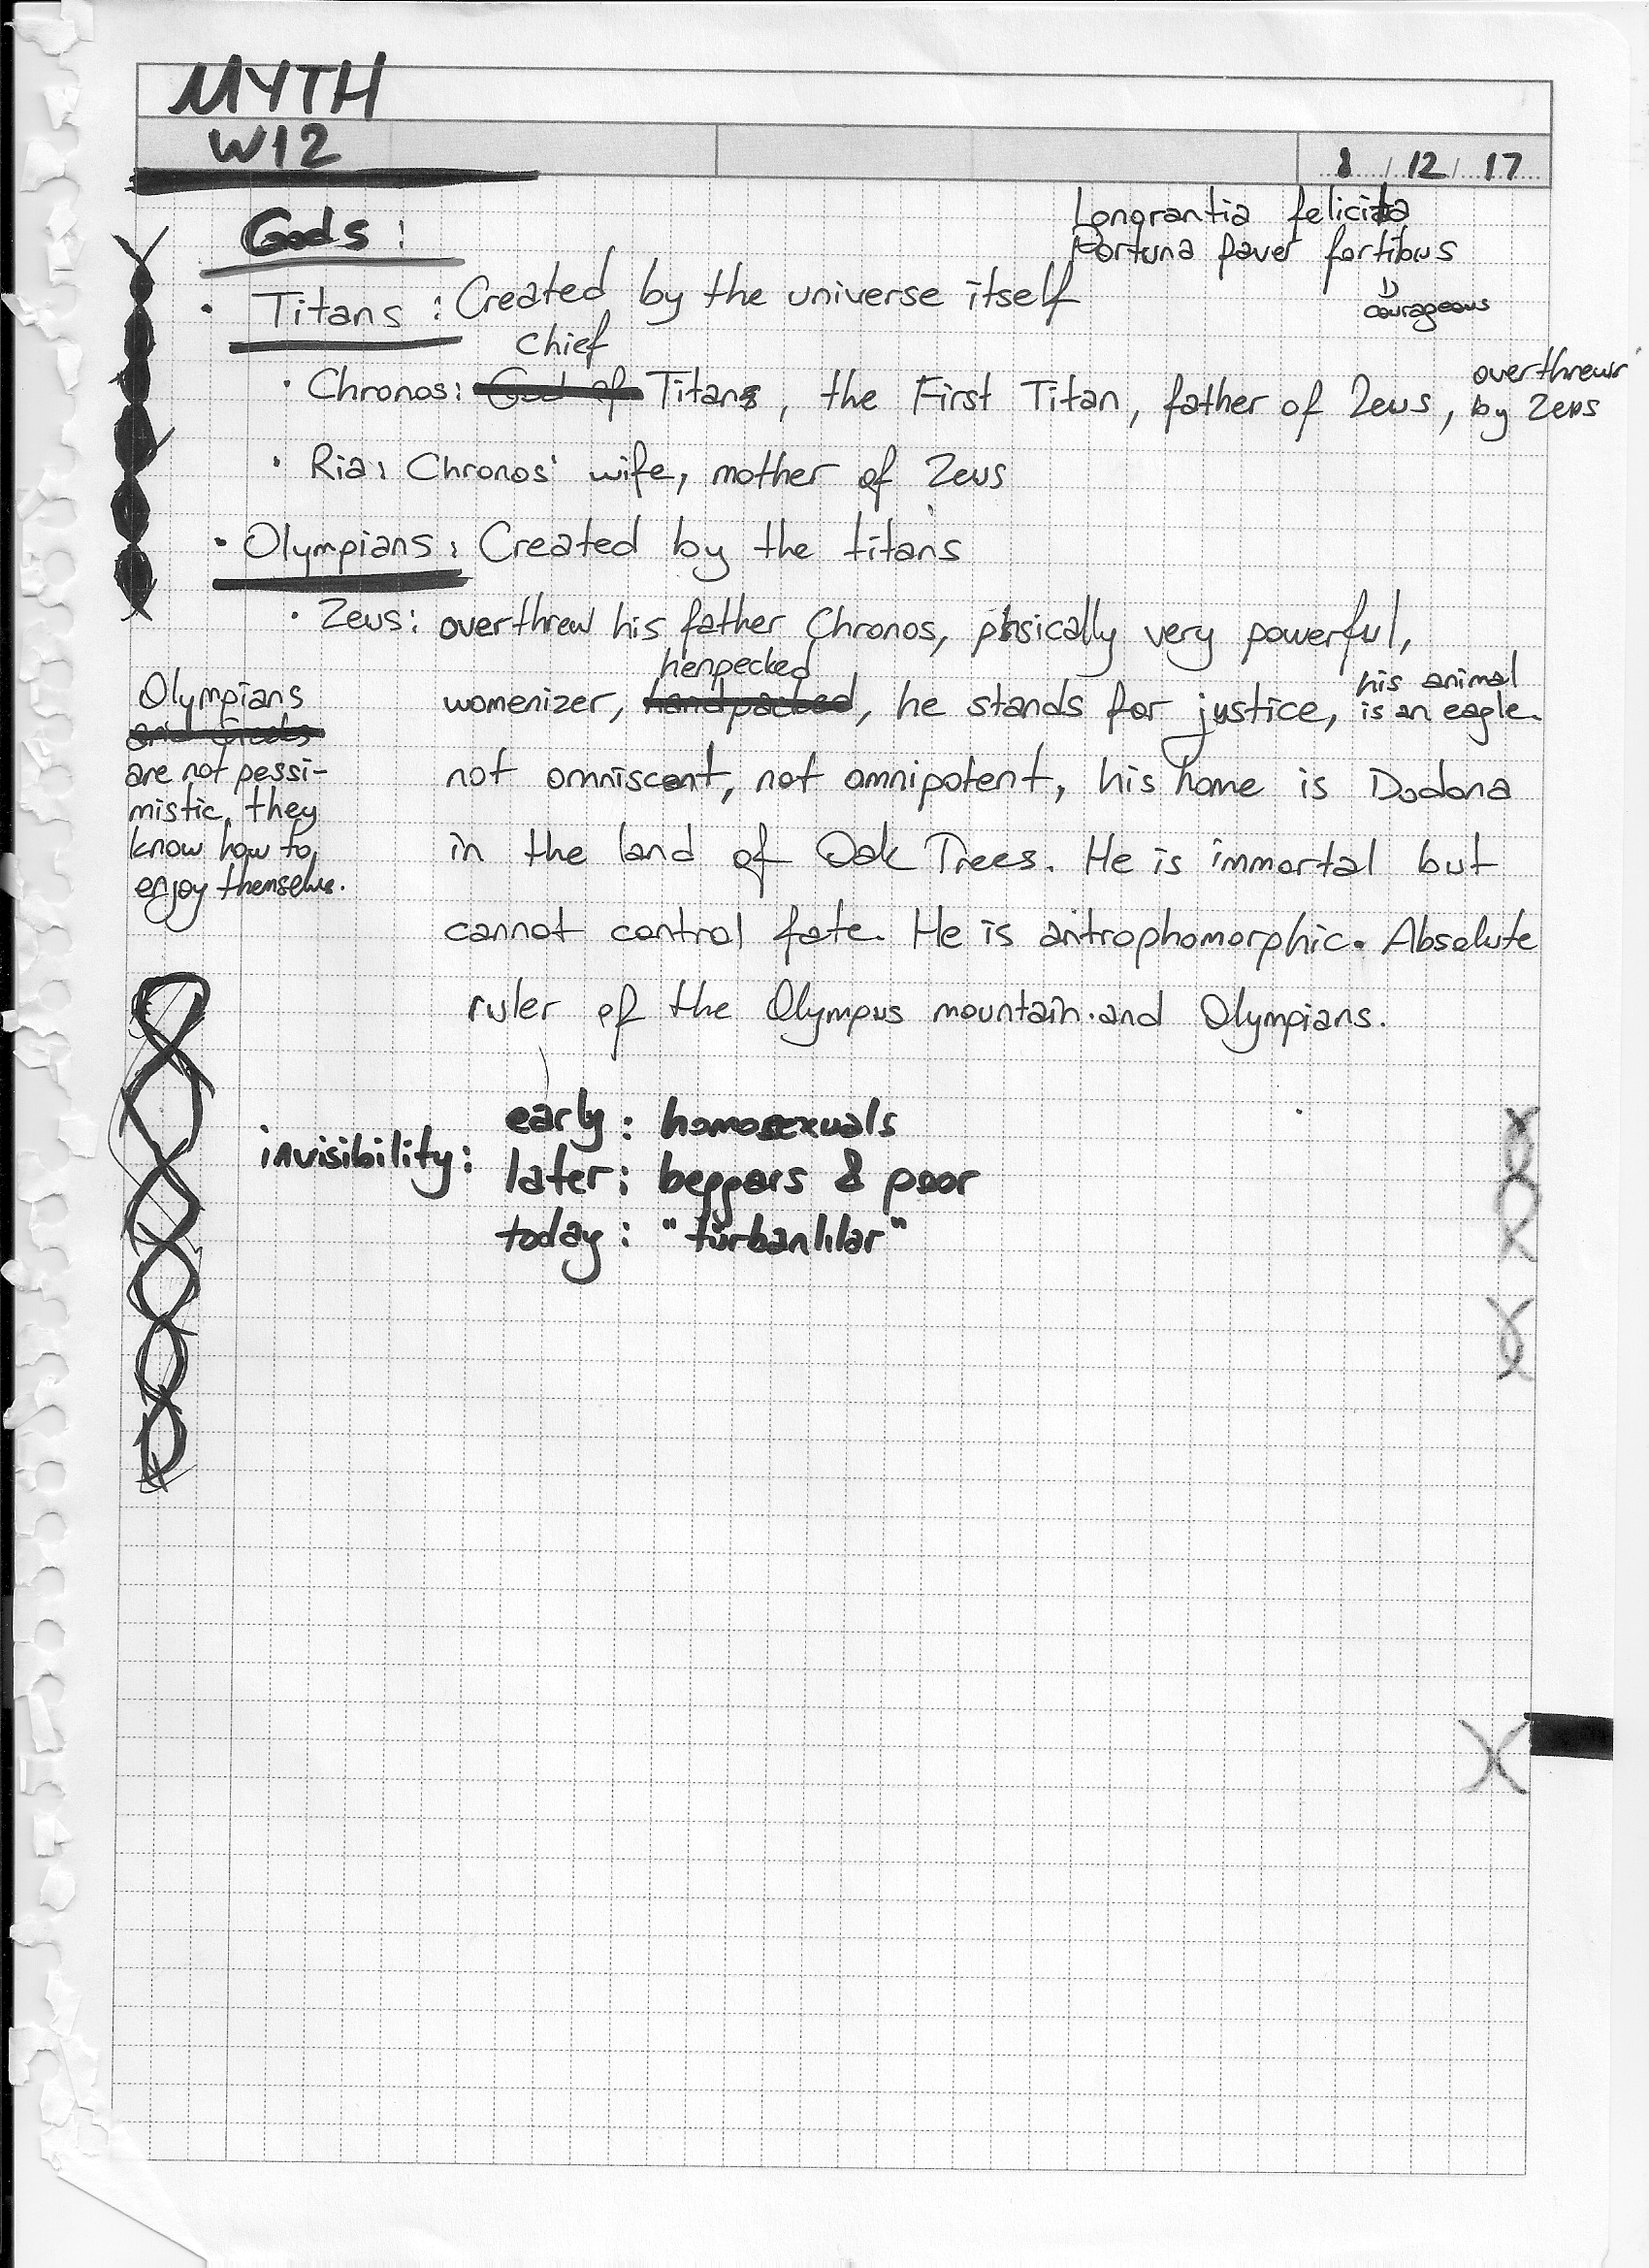 MYTH
W12
8/12/17
Gods:
Longrantia felicita
Fortuna faver fortibus
courageous
• Titans: Created by the universe itself
Chief
• Chronos: God of Titans, the First Titan, father of Zeus, overthrewr by Zeus
• Ria: Chronos' wife, mother of Zeus
• Olympians: Created by the titans
• Zeus: overthrew his father Chronos, phsically very powerful,
henpecked
womenizer, handpacked, he stands for justice, his animal is an eagle.
not omniscent, not omnipotent, his home is Dodona
in the land of Oak Trees. He is immortal but
cannot control fate. He is antrophomorphic. Absolute
ruler of the Olympus mountain and Olympians.
Olympians
and Gods
are not pessi-
mistic, they
know how to
enjoy themselves.
invisibility:
early: homosexuals
later: beggars & poor
today: "türbanlılar"